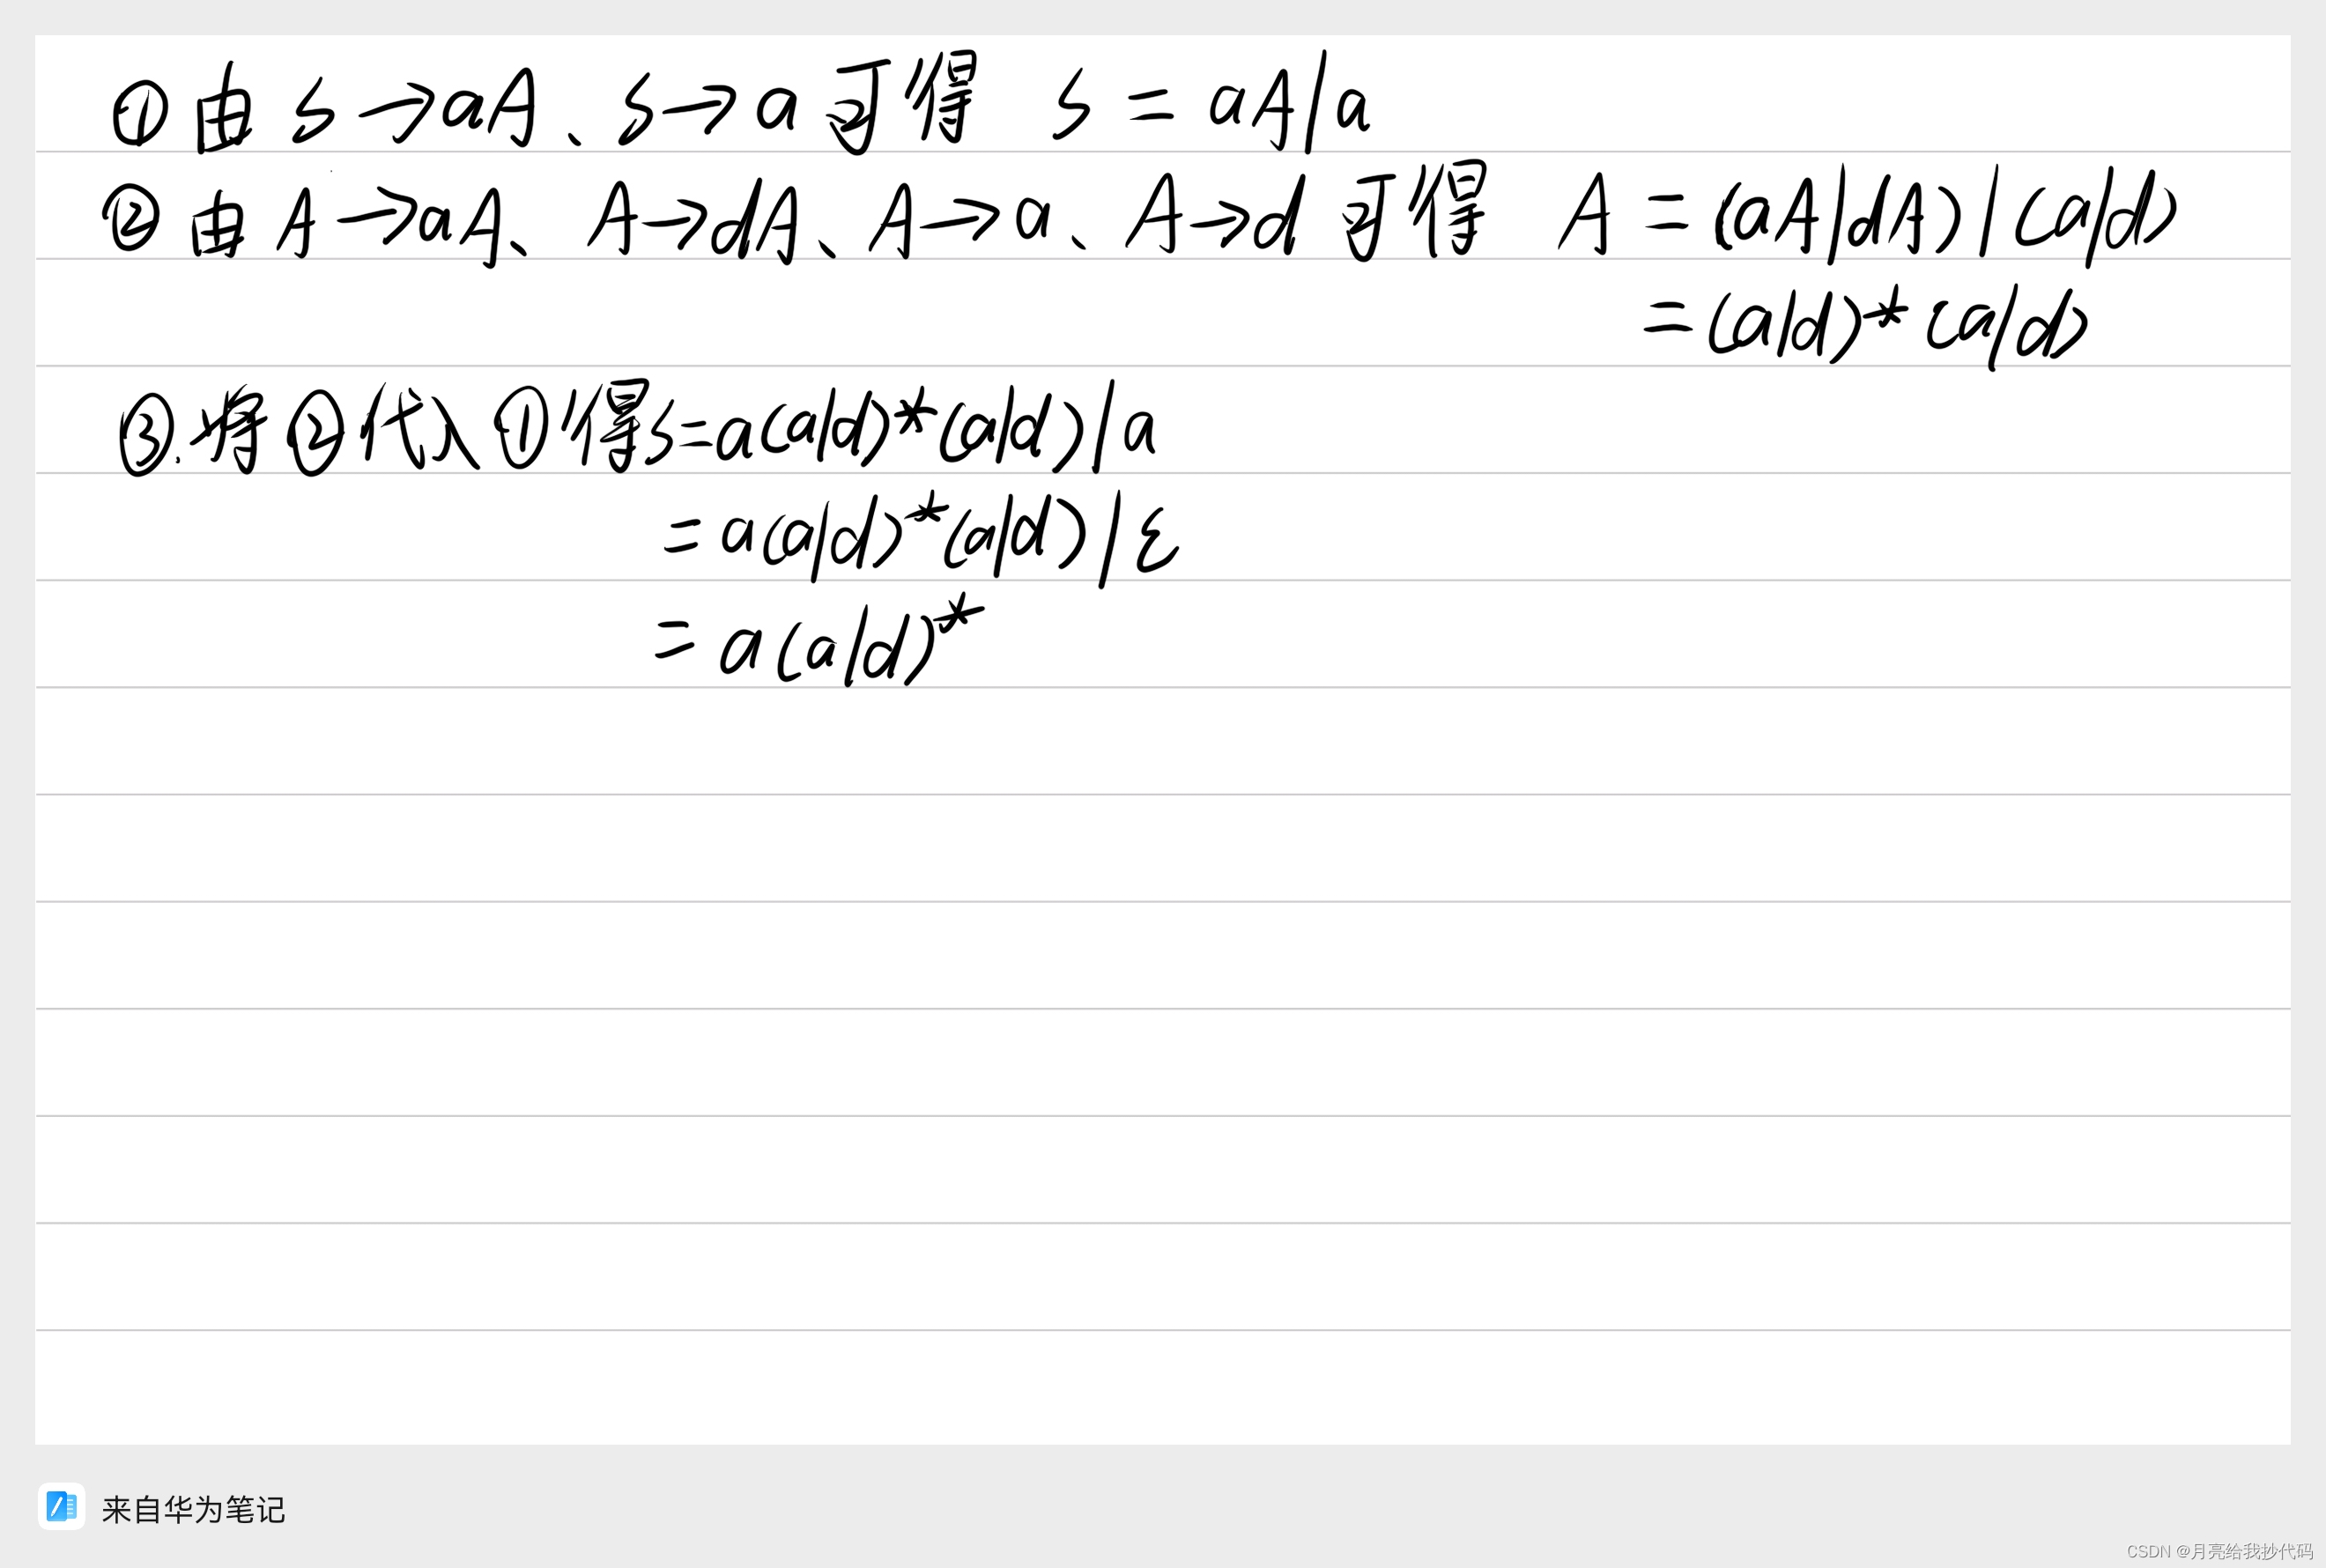 ①由 S→aA、S→a 可得 S=aA|a
②由 A→aA、A→dA、A→a、A→d 可得 A=(aA|dA)|(a|d)
=(a|d)*(a|d)
③.将②代入①得S=a(a|d)*(a|d)|a
=a(a|d)*(a|d)|ε
=a(a|d)*
来自华为笔记
CSDN @月亮给我抄代码